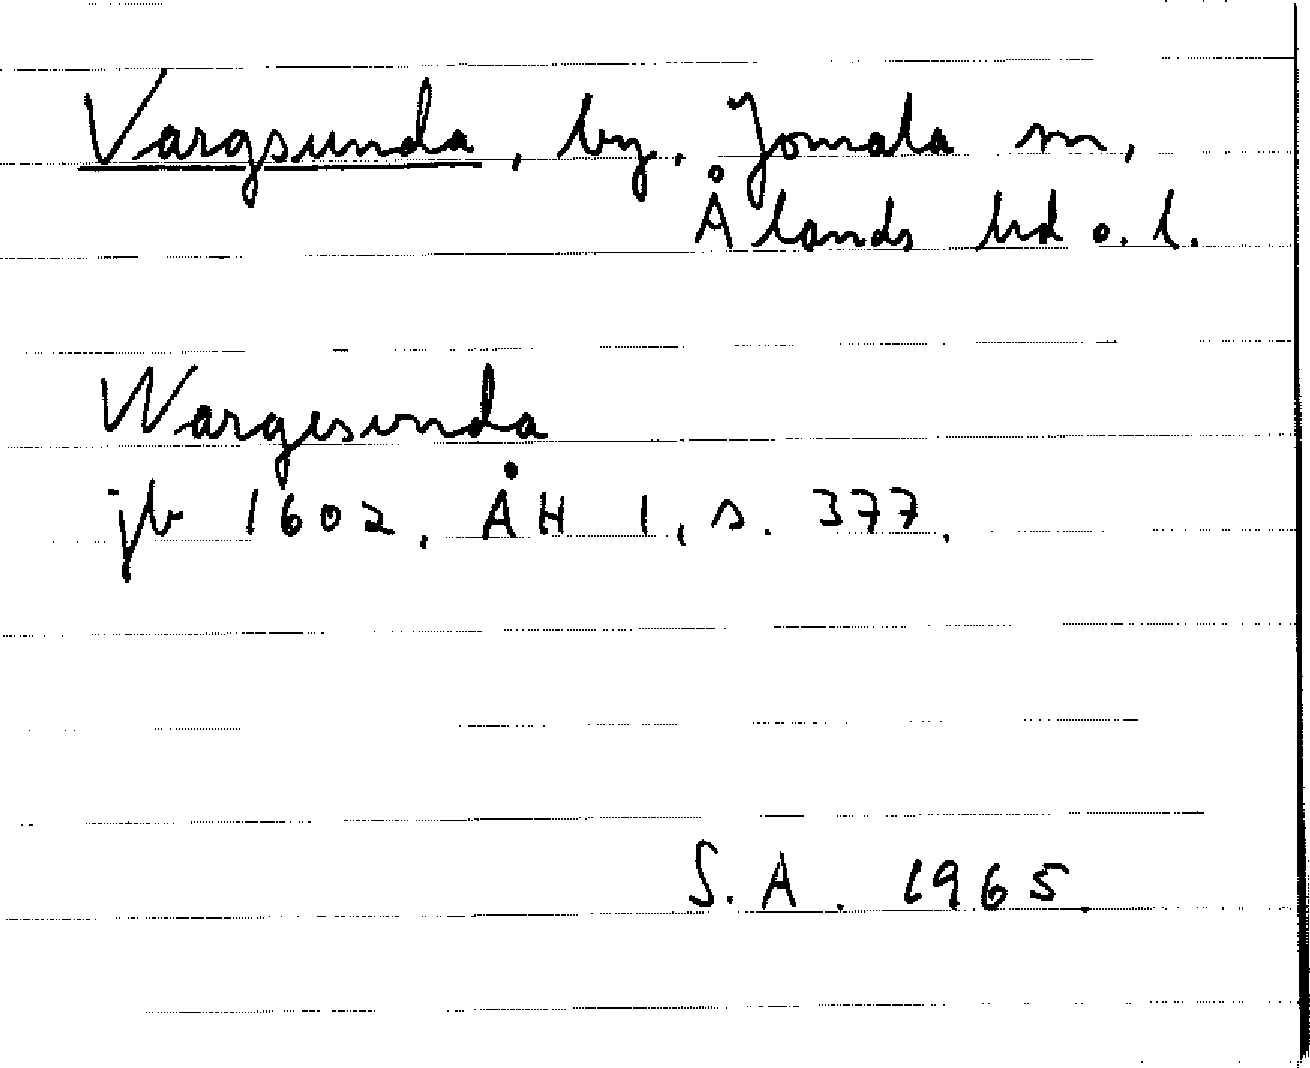 Vargsunda, by. Jomala sn,
Ålands hd o. l.
Wargesunda
jb 1602. ÅH 1, s. 377.
S. A. 1965.